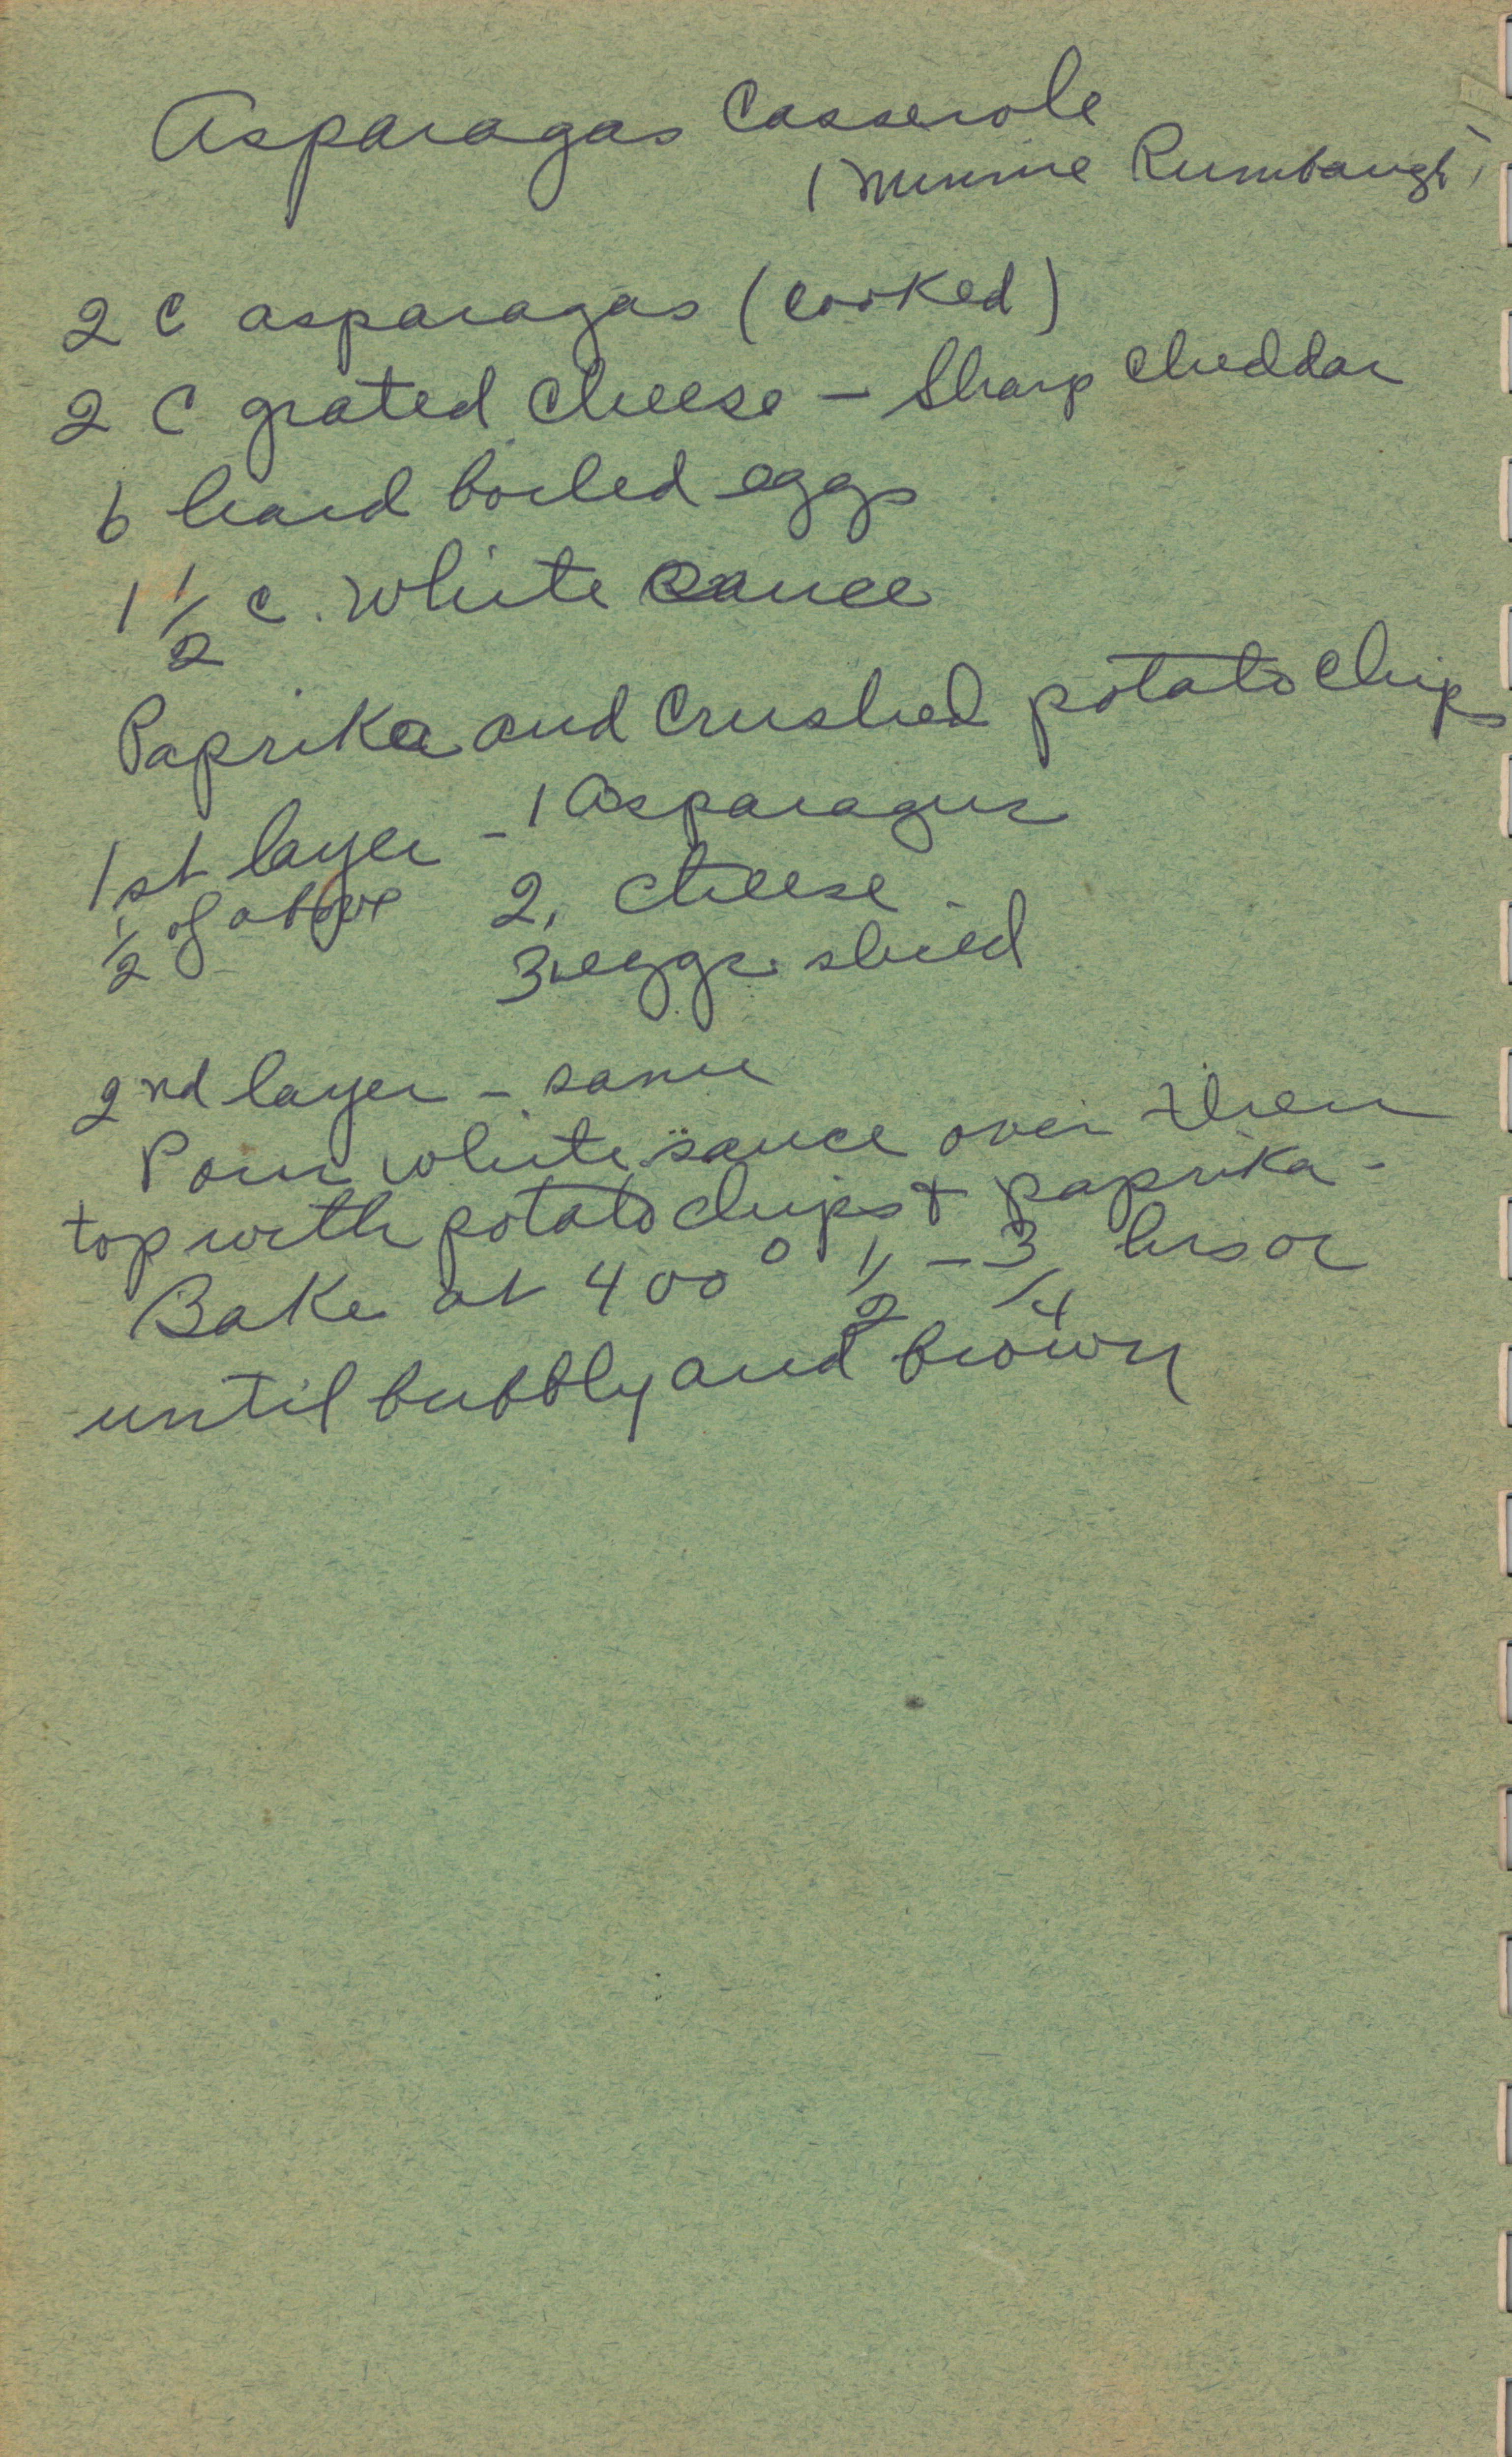 Asparagas Casserole
(Minnie Rumbaugh)
2 C asparagas (cooked)
2 C grated cheese - Sharp cheddar
6 hard boiled eggs
1 1/2 c. white sauce
Paprika and crushed potato chips
1st layer - 1 Asparagus
1/2 of above 2. cheese
3. eggs sliced
2nd layer - same
Pour white sauce over then
top with potato chips & paprika -
Bake at 400° 1/2 - 3/4 hrs or
until bubbly and brown